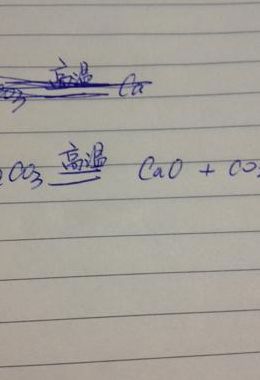 CO₃ 高温 Ca
CO₃ 高温 CaO + CO₂